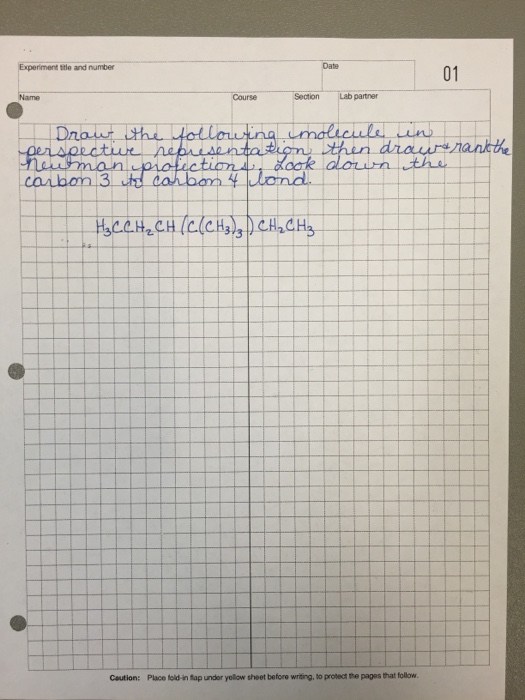 Experiment title and number
Date
01
Name
Course
Section
Lab partner
Draw the following molecule in
perspective representation then draw & rank the
newman projections. Look down the
carbon 3 to carbon 4 bond.
H₃CCH₂CH(C(CH₃)₃)CH₂CH₃
Caution: Place fold-in flap under yellow sheet before writing, to protect the pages that follow.